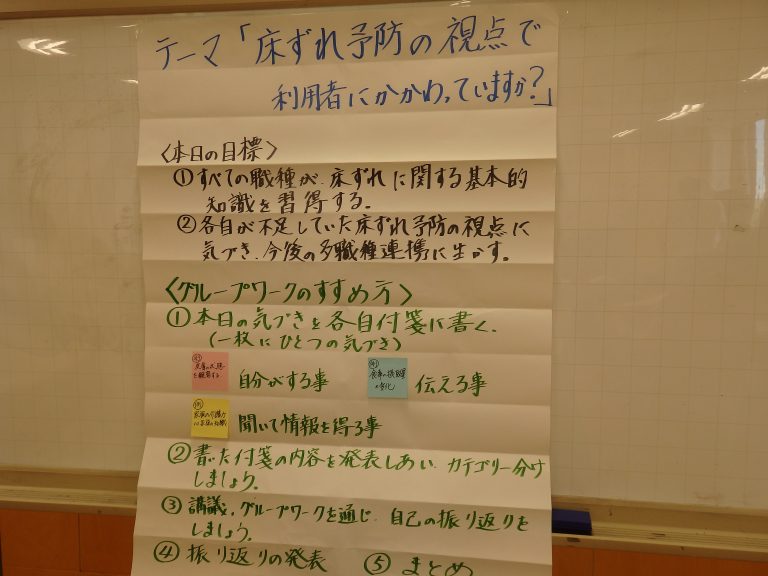 テーマ「床ずれ予防の視点で
利用者にかかわっていますか?」
〈本日の目標〉
①すべての職種が、床ずれに関する基本的
知識を習得する。
②各自が不足していた床ずれ予防の視点に
気づき、今後の多職種連携に生かす。
〈グループワークのすすめ方〉
①本日の気づきを各自付箋に書く。
(一枚にひとつの気づき)
自分がする事
伝える事
聞いて情報を得る事
②書いた付箋の内容を発表しあい、カテゴリー分け
しましょう。
③講義、グループワークを通じ、自己の振り返りを
しましょう。
④振り返りの発表 ⑤まとめ